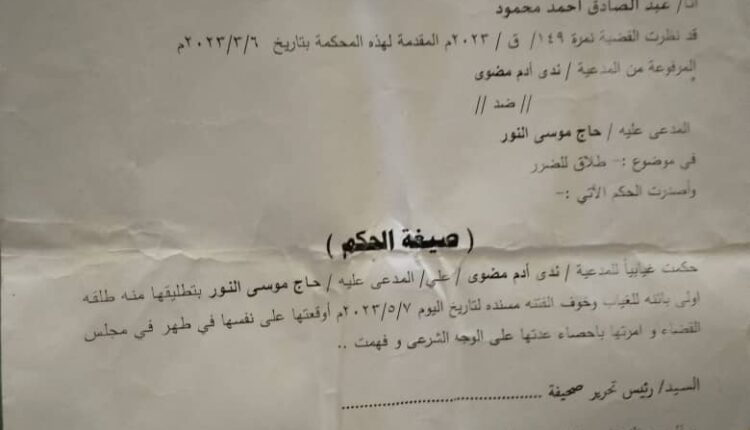 أنا/ عبد الصادق احمد محمود
قد نظرت القضية نمرة ١٤٩/ ق / ٢٠٢٣م المقدمة لهذه المحكمة بتاريخ ٢٠٢٣/٣/٦م
المرفوعة من المدعية / ندى أدم مضوى
// ضد //
المدعى عليه / حاج موسى النور
في موضوع :- طلاق للضرر
وأصدرت الحكم الأتي :-
( صيغة الحكم )
حكمت غيابياً للمدعية / ندى أدم مضوى / علي/ المدعى عليه / حاج موسى النور بتطليقها منه طلقه
اولى بائنه للغياب وخوف الفتنه مسنده لتاريخ اليوم ٢٠٢٣/٥/٧م أوقعتها على نفسها في طهر في مجلس
القضاء و امرتها باحصاء عدتها على الوجه الشرعى و فهمت ..
السيد/ رئيس تحرير صحيفة ......................................